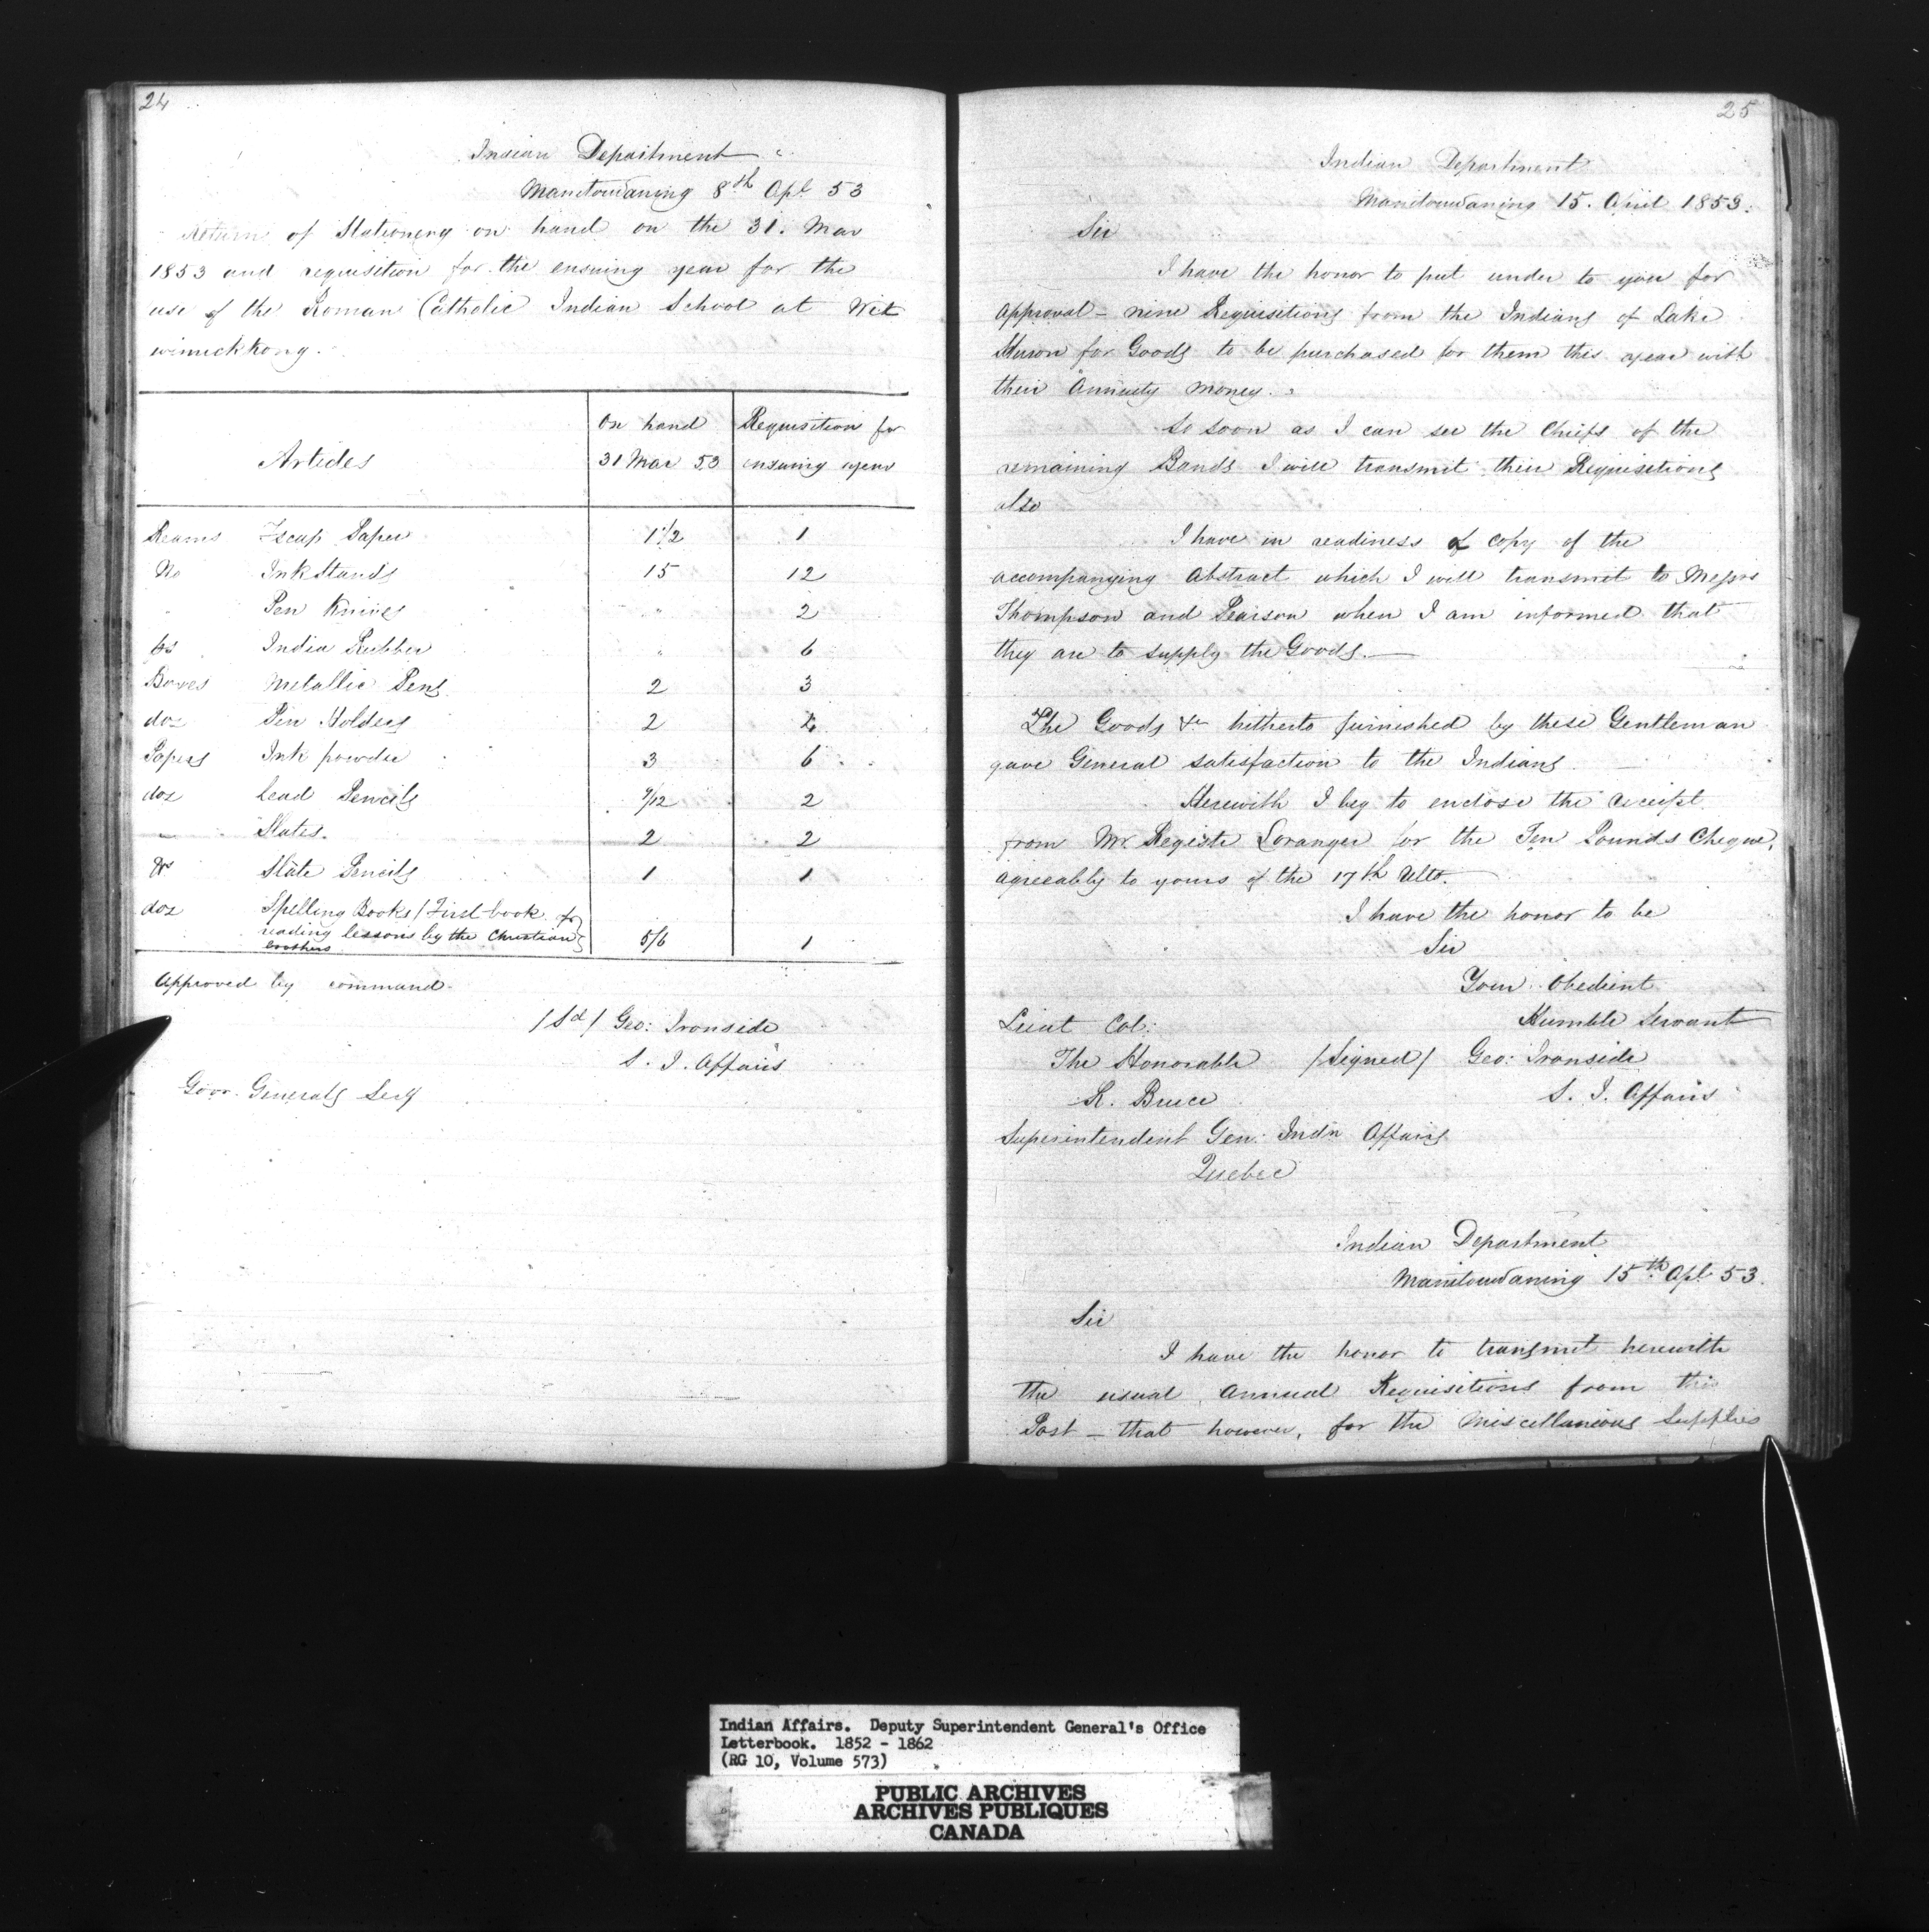 24
Indian Department
Manitowaning 8th Apl 53
Return of Stationery on hand on the 31. Mar
1853 and requisition for the ensuing year for the
use of the Roman Catholic Indian School at Wek
wimickkong.
Articles On hand 31 Mar 53 Requisition for ensuing year
Reams Fscap Paper 1 1/2 1
No InkStands 15 12
" Pen Knives " 2
India Rubber " 6
Boxes Metallic Pens 2 3
doz Pen Holders 2 4
Papers Ink powder 3 6
doz Lead Pencils 9/12 2
" Slates. 2 2
Slate Pencils 1 1
doz Spelling Books / First book of
reading lessons by the Christian
brothers 5/6 1
Approved by command
/Sd/ Geo: Ironside
S. I. Affairs
Govr. Generals Secy
25
Indian Department
Manitowaning 15. April 1853.
Sir
I have the honor to put under to you for
Approval - nine Requisitions from the Indians of Lake
Huron for Goods to be purchased for them this year with
their Annuity money.
So soon as I can see the Chiefs of the
remaining Bands I will transmit their Requisitions
also
I have in readiness a copy of the
accompanying Abstract which I will transmit to Messrs
Thompson and Pearson when I am informed that
they are to supply the Goods.—
The Goods &c hitherto furnished by these Gentleman
gave General satisfaction to the Indians.
Herewith I beg to enclose the receipt
from Mr. Registe Loranger for the Ten Pounds Cheque,
agreeably to yours of the 17th Ulto.
I have the honor to be
Sir
Your Obedient
Humble Servant
Lieut Col:
The Honorable /Signed/ Geo: Ironside
R. Bruce S. I. Affairs
Superintendent Gen: Indn Affairs
Quebec
Indian Department
Manitowaning 15th Apl 53.
Sir
I have the honor to transmit herewith
the usual Annual Requisitions from this
Post - that however, for the Miscellanious Supplies
Indian Affairs. Deputy Superintendent General's Office
Letterbook. 1852 - 1862
(RG 10, Volume 573)
PUBLIC ARCHIVES
ARCHIVES PUBLIQUES
CANADA